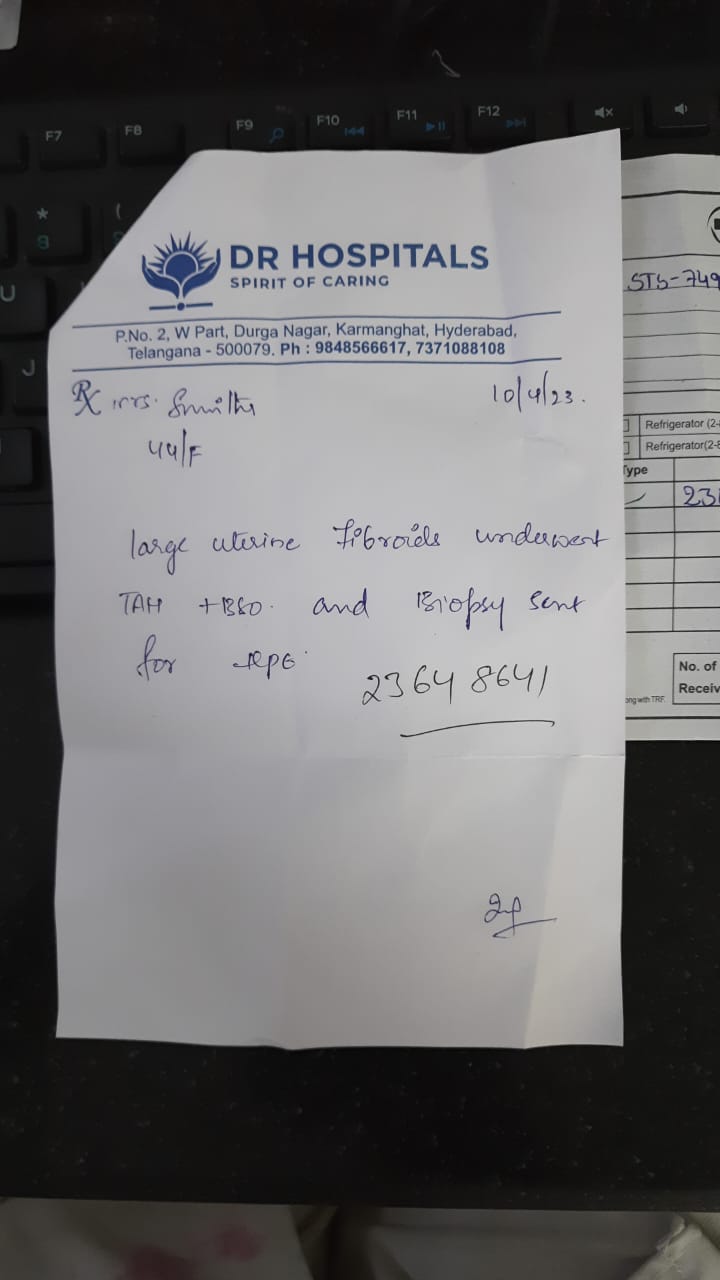 F7 F8 F9 F10 F11 F12
* (
8
U
J
DR HOSPITALS
SPIRIT OF CARING
P.No. 2, W Part, Durga Nagar, Karmanghat, Hyderabad,
Telangana - 500079. Ph : 9848566617, 7371088108
Rx Mrs. 10/4/23.
44/F
large uterine Fibroids underwent
TAH +BSO. and Biopsy sent
for HPE
23648641
STS-749
Refrigerator (2-
Refrigerator(2-8
Type
231
No. of
Receiv
ong with TRF.